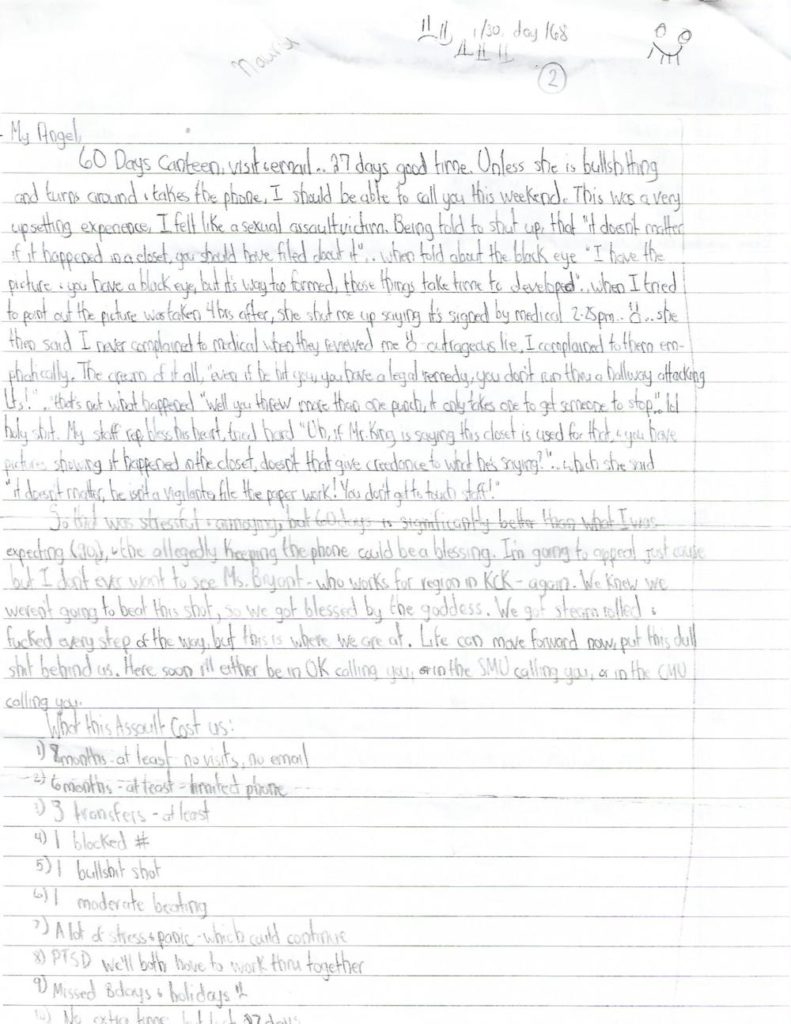 1/30 day 168
2
My Angel,
60 Days Canteen, visit & email.. 27 days good time. Unless she is bullshitting
and turns around & takes the phone, I should be able to call you this weekend. This was a very
upsetting experience, I felt like a sexual assault victim. Being told to shut up, that "it doesn't matter
if it happened in a closet, you should have filed about it".. when told about the black eye "I have the
picture & you have a black eye, but it's way too formed, those things take time to developed".. when I tried
to point out the picture was taken 4 hrs after, she shut me up saying it's signed by medical 2:25pm.. she
then said I never complained to medical when they reviewed me outrageous lie, I complained to them em-
phatically. The cream of it all, "even if he hit you, you have a legal remedy, you don't run thru a hallway attacking
Lts!".. "that's not what happened" "Well you threw more than one punch, it only takes one to get someone to stop."
holy shit. My staff rep bless his heart, tried hard "Uh, if Mr. King is saying this closet is used for that, & you have
pictures showing it happened in the closet, doesn't that give creedance to what he's saying?".. which she said
"it doesn't matter, he isn't a vigilante, file the paper work! You don't get to touch staff!"
So that was stressful & annoying, but 60 days is significantly better than what I was
expecting, & the allegedly keeping the phone could be a blessing. I'm going to appeal just cause
but I don't ever want to see Ms. Bryant - who works for region in KCK - again. We knew we
weren't going to beat this shot, so we got blessed by the goddess. We got steam rolled &
fucked every step of the way, but this is where we are at. Life can move forward now, put this dull
shit behind us. Here soon i'll either be in OK calling you, or in the SMU calling you, or in the CMU
calling you.
What this Assault Cost us:
1) 8 months - at least no visits, no email
2) 6 months - at least - limited phone
3) 3 transfers - at least
4) 1 blocked #
5) 1 bullshit shot
6) 1 moderate beating
7) A lot of stress & panic - which could continue
8) PTSD we'll both have to work thru together
9) Missed Bdays & holidays
10) No extra time, but lost 27 days